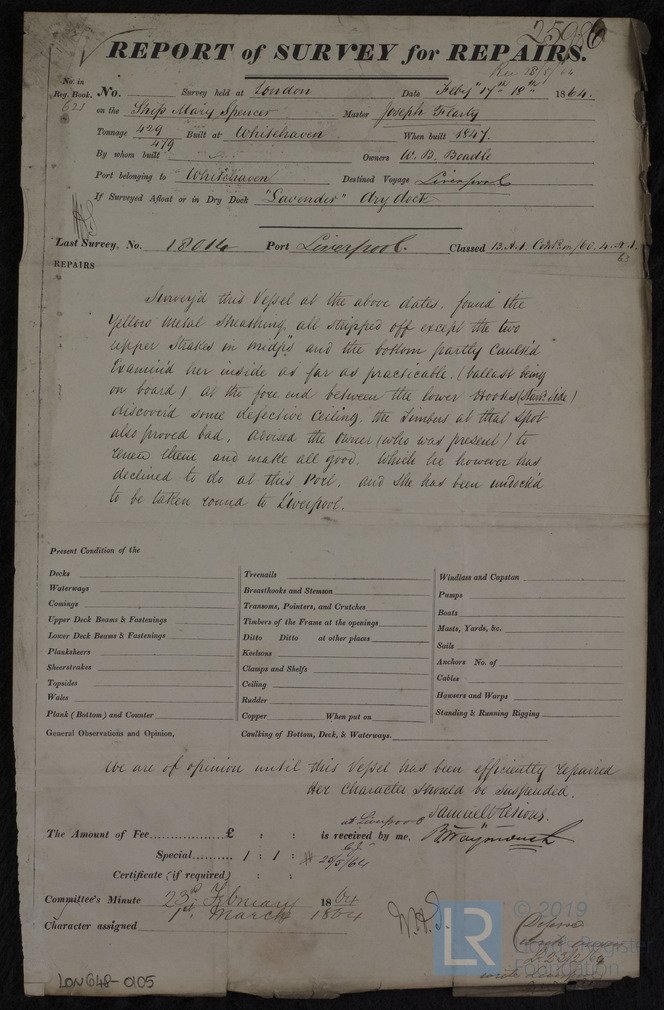 25986
REPORT of SURVEY for REPAIRS.
Rec 28/5/64
No. in
Reg. Book. No. Survey held at London Date Feby 17th 18th 1864.
621 on the Ship Mary Spencer Master Joseph
Tonnage 429 Built at Whitehaven When built 1847.
479
By whom built Owners W. B. Beadle
Port belonging to Whitehaven Destined Voyage Liverpool
If Surveyed Afloat or in Dry Dock "Lavender" Dry dock
Last Survey, No. 18014 Port Liverpool. Classed
63
REPAIRS
Survey'd this Vessel at the above dates. found the
Yellow Metal Sheathing all stripped off except the two
upper strakes in midps and the bottom partly Caulk'd
Examin'd her inside as far as practicable. (ballast being
on board) at the fore end between the lower Hooks (Starb. Side)
discover'd some defective Ceiling. the Timbers at that Spot
also proved bad. Advised the Owner (who was present) to
renew them and make all good. Which he however has
declined to do at this Port. and she has been undock'd
to be taken round to Liverpool.
Present Condition of the
Decks
Waterways
Comings
Upper Deck Beams & Fastenings
Lower Deck Beams & Fastenings
Planksheers
Sheerstrakes
Topsides
Wales
Plank (Bottom) and Counter
Treenails
Breasthooks and Stemson
Transoms, Pointers, and Crutches
Timbers of the Frame at the openings
Ditto Ditto at other places
Keelsons
Clamps and Shelfs
Ceiling
Rudder
Copper When put on
Windlass and Capstan
Pumps
Boats
Masts, Yards, &c.
Sails
Anchors No. of
Cables
Hausers and Warps
Standing & Running Rigging
General Observations and Opinion, Caulking of Bottom, Deck, & Waterways.
We are of opinion until this Vessel has been efficiently repaired
Her Character should be suspended.
at Liverpool Samuel
The Amount of Fee...............£ : : is received by me, B. Waymouth
Special.......... 1 : 1 : 25/5/64
Certificate (if required) : :
Committee's Minute 23rd February 1864
1st March 1864
Character assigned
LR
© 2019
Lloyd's Register
Foundation
LON648-0105